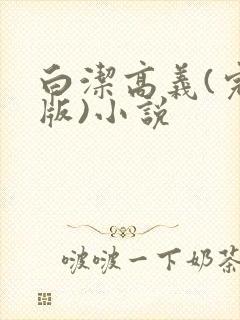 白潔高義(完
版)小說
啵啵一下奶茶